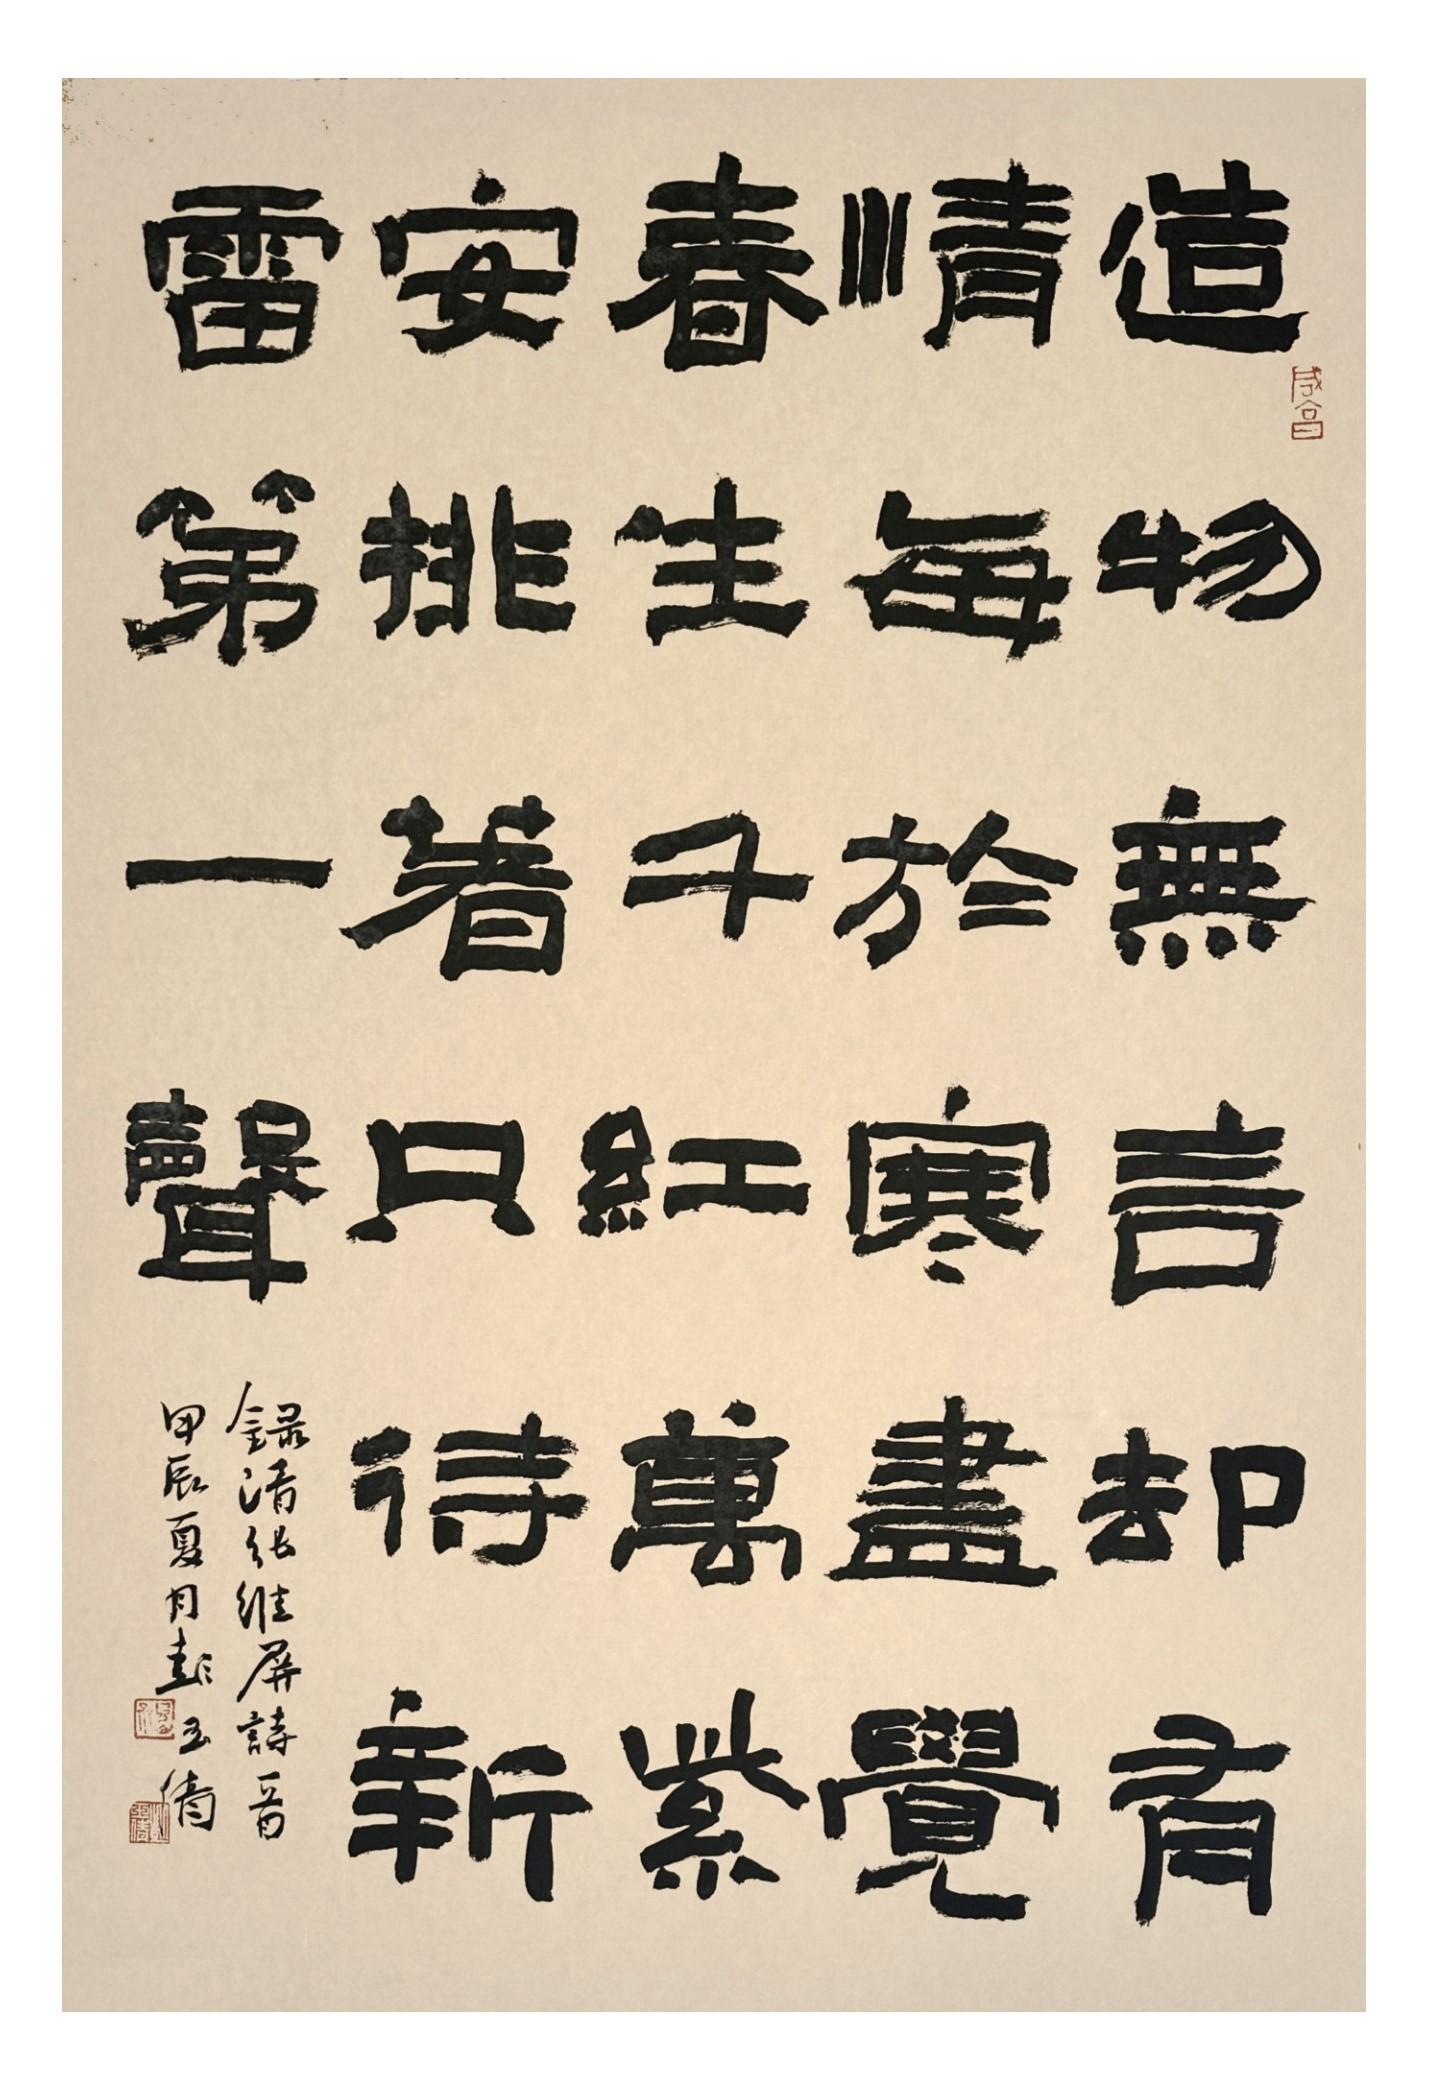 造物無言却有
情每於寒盡覺
春生千紅萬紫
安排著只待新
雷第一聲
錄清張維屏詩一首
甲辰夏月彭玉倩